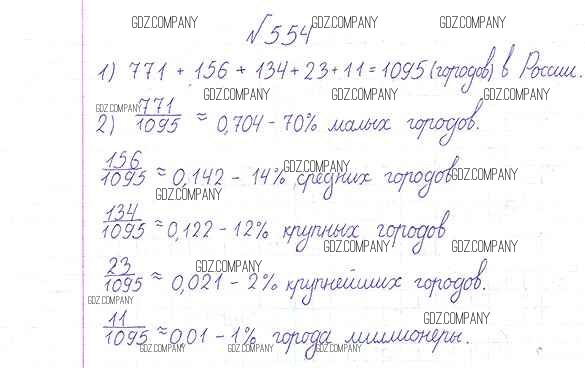 GDZ.COMPANY GDZ.COMPANY GDZ.COMPANY
№554
1) 771 + 156 + 134 + 23 + 11 = 1095 (городов) в России.
GDZ.COMPANY GDZ.COMPANY GDZ.COMPANY
GDZ.COMPANY
2) 771/1095 ≈ 0,704 - 70% малых городов.
GDZ.COMPANY GDZ.COMPANY
156/1095 ≈ 0,142 - 14% средних городов
GDZ.COMPANY
134/1095 ≈ 0,122 - 12% крупных городов
GDZ.COMPANY GDZ.COMPANY
GDZ.COMPANY
23/1095 ≈ 0,021 - 2% крупнейших городов.
GDZ.COMPANY
GDZ.COMPANY
11/1095 ≈ 0,01 - 1% города миллионеры.
GDZ.COMPANY GDZ.COMPANY GDZ.COMPANY